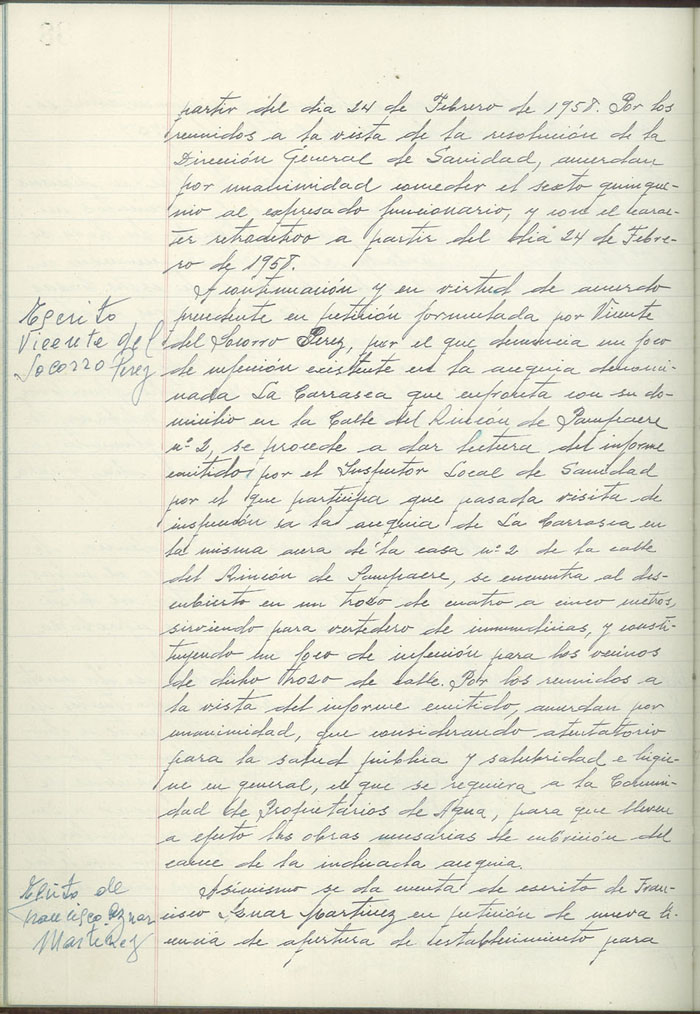 partir del dia 24 de Febrero de 1958. Por los
reunidos a la vista de la resolución de la
Dirección General de Sanidad, acuerdan
por unanimidad conceder el sexto quinque-
nio al expresado funcionario, y con el carac-
ter retroactivo a partir del dia 24 de Febre-
ro de 1958.
A continuación y en virtud de acuerdo
Escrito
Vicente del
Socorro Perez
precedente en petición formulada por Vicente
del Socorro Perez, por el que denuncia un foco
de infección existente en la acequia denomi-
nada La Carrasca que enfronta con su do-
micilio en la Calle del Rincón de Pampaere
nº 2, se procede a dar lectura del informe
emitido por el Inspector Local de Sanidad
por el que participa que pasada visita de
inspección a la acequia de La Carrasca en
la misma acera de la casa nº 2 de la calle
del Rincón de Pampaere, se encuentra al des-
cubierto en un trozo de cuatro a cinco metros,
sirviendo para vertedero de inmundicias, y consti-
tuyendo un foco de infección para los vecinos
de dicho trozo de calle. Por los reunidos a
la vista del informe emitido, acuerdan por
unanimidad, que considerando atentatorio
para la salud pública y salubridad e higie-
ne en general, el que se requiera a la Comuni-
dad de Propietarios de Agua, para que lleven
a efecto las obras necesarias de cubrición del
cauce de la indicada acequia.
Escrito de
Francisco Aznar
Martinez
Asimismo se da cuenta de escrito de Fran-
cisco Aznar Martinez en petición de nueva li-
cencia de apertura de establecimiento para